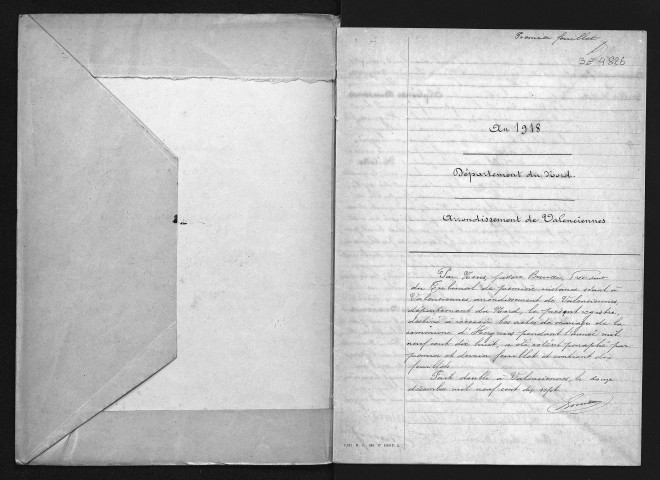 Premier feuillet
3 E 9826
An 1918
Département du Nord.
Arrondissement de Valenciennes
Par Nous,
du Tribunal de première instance séant à
Valenciennes, arrondissement de Valenciennes,
département du Nord, le présent registre,
destiné à recevoir les actes de mariage de la
commune d' pendant l'année mil
neuf cent dix huit, a été coté et paraphé par
premier et dernier feuillet et contient dix
feuillets
Fait double à Valenciennes, le douze
décembre mil neuf cent dix sept.